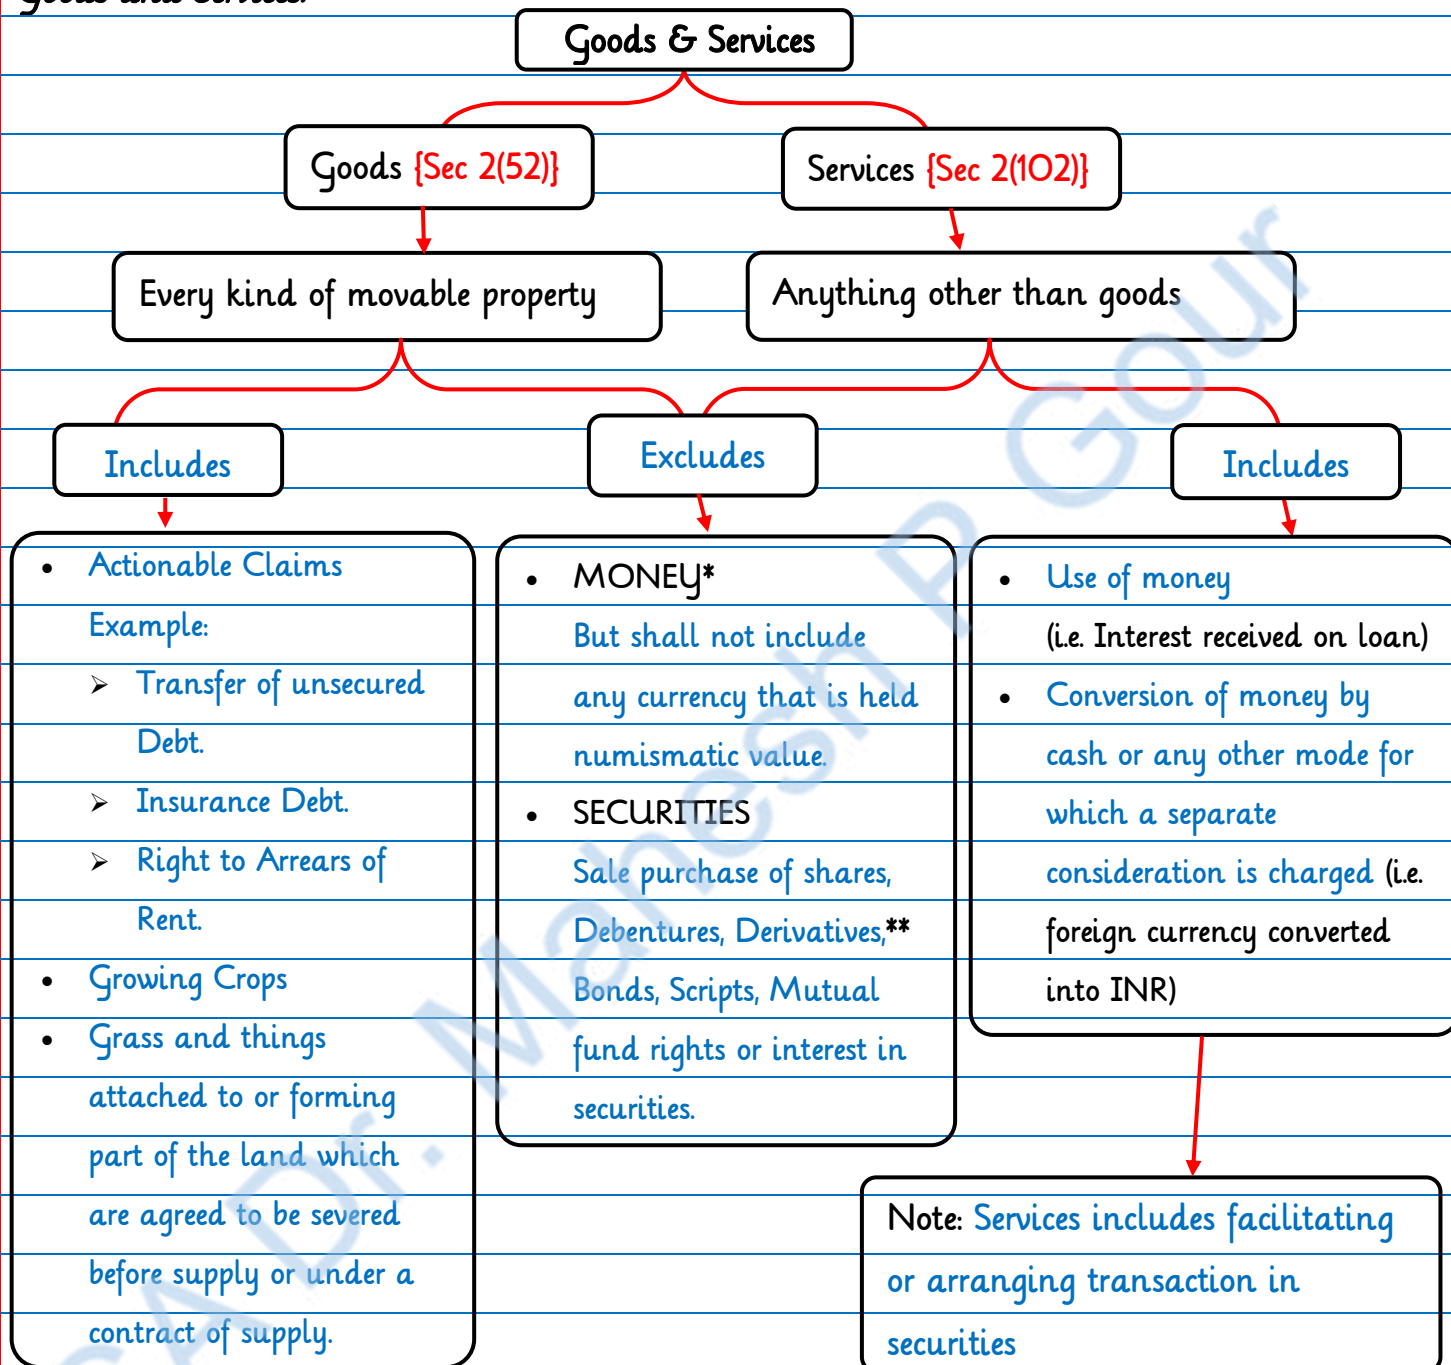 Goods and Services:
Goods & Services
Goods {Sec 2(52)}
Services {Sec 2(102)}
Every kind of movable property
Anything other than goods
Includes
Excludes
Includes
• Actionable Claims
Example:
➢ Transfer of unsecured
Debt.
➢ Insurance Debt.
➢ Right to Arrears of
Rent.
• Growing Crops
• Grass and things
attached to or forming
part of the land which
are agreed to be severed
before supply or under a
contract of supply.
• MONEY*
But shall not include
any currency that is held
numismatic value.
• SECURITIES
Sale purchase of shares,
Debentures, Derivatives,**
Bonds, Scripts, Mutual
fund rights or interest in
securities.
• Use of money
(i.e. Interest received on loan)
• Conversion of money by
cash or any other mode for
which a separate
consideration is charged (i.e.
foreign currency converted
into INR)
Note: Services includes facilitating
or arranging transaction in
securities
CA Dr. Mahesh P Gour